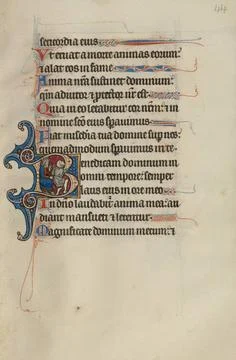 sericordia eius
Vt eruat a morte animas eorum: 7
alat eos in fame
Anima nr̄a sustinet dominum:
qm̄ adiutor 7 ptector nr̄ est
Quia in eo letabitur cor nr̄m: 7 in
nomine sc̄o eius sperauimus
Fiat misericordia tua domine sup nos:
quemadmodum sperauimus in te
Benedicam dominum in
omni tempore: semper
laus eius in ore meo
In dn̄o laudabit̄ anima mea: au
diant mansueti 7 letentur
Magnificate dominum mecum: 7